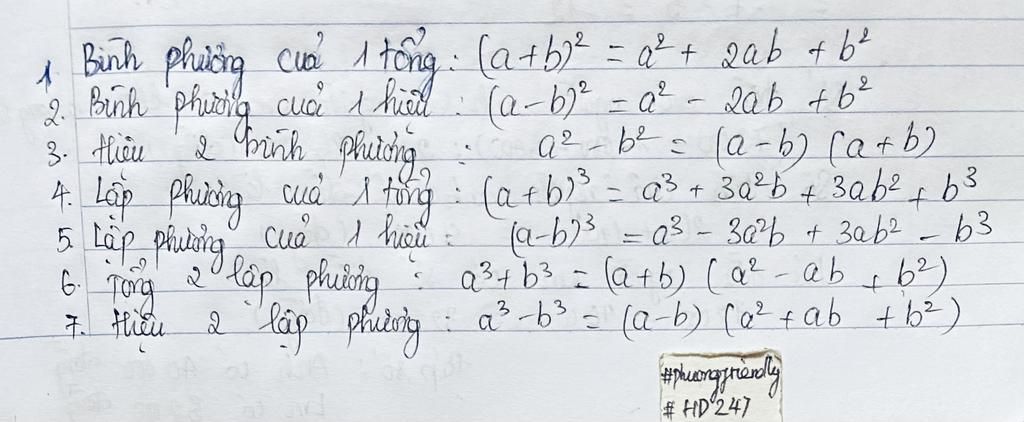 1 Bình phương cuả 1 tổng : (a+b)² = a² + 2ab + b²
2. Bình phương cuả 1 hiệu : (a-b)² = a² - 2ab + b²
3. Hiệu 2 bình phương : a² - b² = (a-b) (a+b)
4. Lập phương cuả 1 tổng : (a+b)³ = a³ + 3a²b + 3ab² + b³
5. Lập phương cuả 1 hiệu : (a-b)³ = a³ - 3a²b + 3ab² - b³
6. Tổng 2 lập phương : a³+b³ = (a+b) (a² - ab + b²)
7. Hiệu 2 lập phương : a³-b³ = (a-b) (a² + ab + b²)
#phuongfriendly
# HD 247